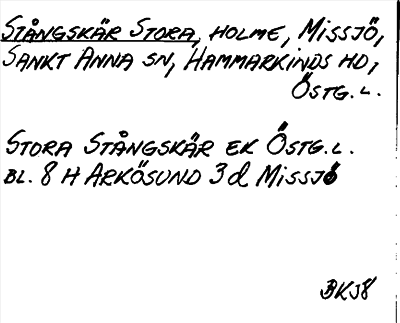 STÅNGSKÄR STORA, HOLME, MISSJÖ,
SANKT ANNA SN, HAMMARKINDS HD,
ÖSTG. L.
STORA STÅNGSKÄR EK ÖSTG. L.
BL. 8 H ARKÖSUND 3 d MISSJÖ
BKJ8